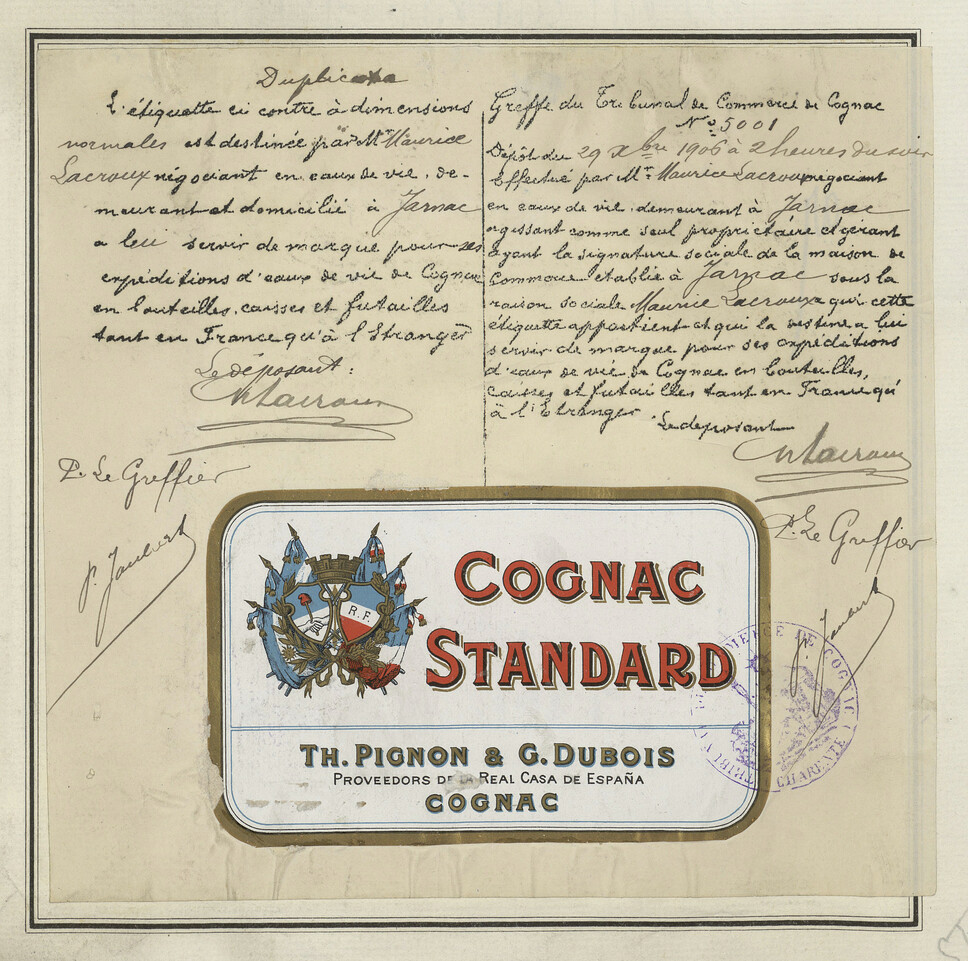 Duplicata
L'étiquette ci contre à dimensions
normales est destinée par Mr Maurice
Lacroux négociant en eaux de vie, de-
meurant et domicilié à Jarnac
a lui servir de marque pour ses
expéditions d'eaux de vie de Cognac
en bouteilles, caisses et futailles
tant en France qu'à l'Etranger
Le déposant:
MLacroux
P. Le Greffier
P. Jaubert
Greffe du Tribunal de Commerce de Cognac
No 5001
Dépôt du 29 Xbre 1906 à 2 heures du soir
Effectué par Mr Maurice Lacroux négociant
en eaux de vie, demeurant à Jarnac
agissant comme seul propriétaire et gérant
ayant la signature sociale de la maison de
Commerce établie à Jarnac sous la
raison sociale Maurice Lacroux a qui cette
étiquette appartient et qui la destine a lui
servir de marque pour ses expéditions
d'eaux de vie de Cognac en bouteilles,
caisses et futailles tant en France qu'
à l'Etranger
Le déposant
MLacroux
P. Le Greffier
P. Jaubert
R.F.
COGNAC
STANDARD
TH. PIGNON & G. DUBOIS
PROVEEDORS DE LA REAL CASA DE ESPAÑA
COGNAC
COMMERCE DE COGNAC
CHARENTE